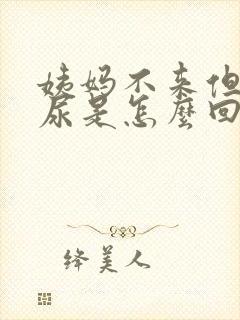 姨妈不来但
尿是怎麼回
绛美人